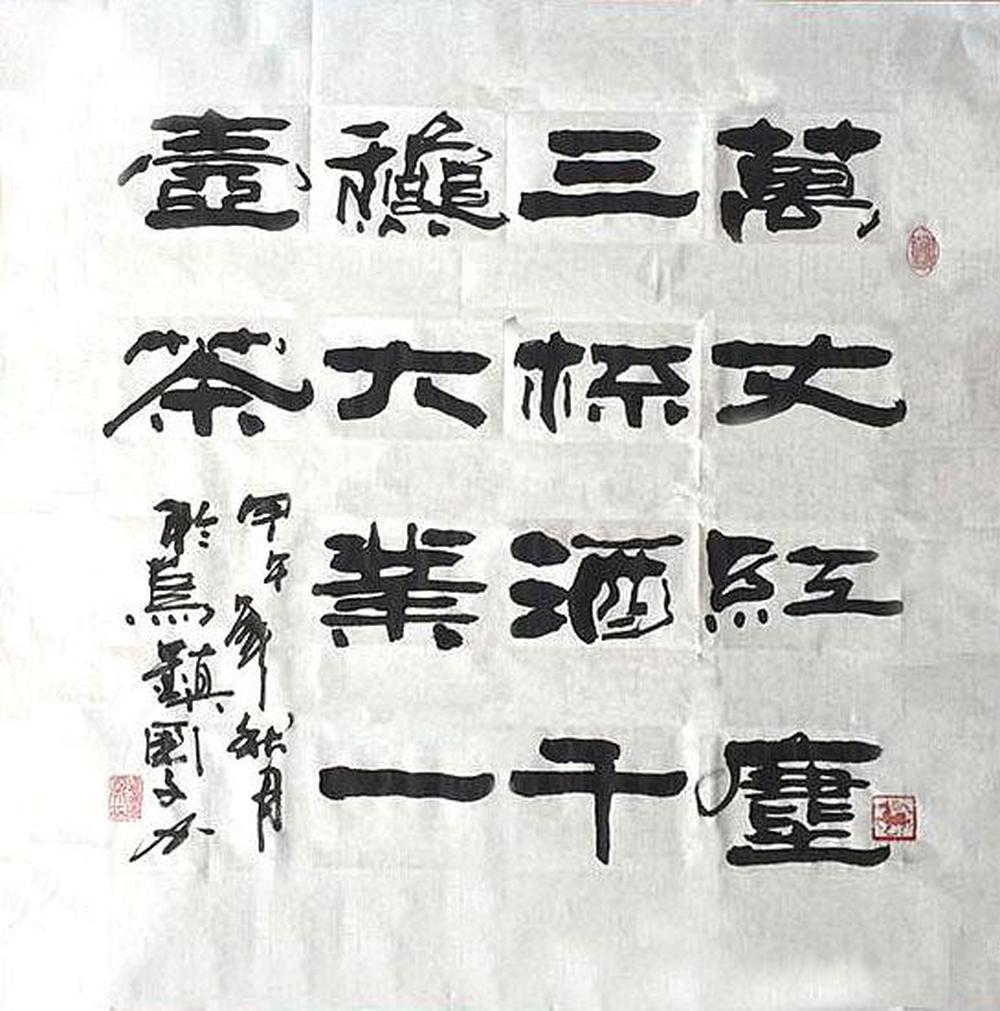 萬丈紅塵
三杯酒千
龝大業一
壺茶
甲午年秋月
於烏鎮